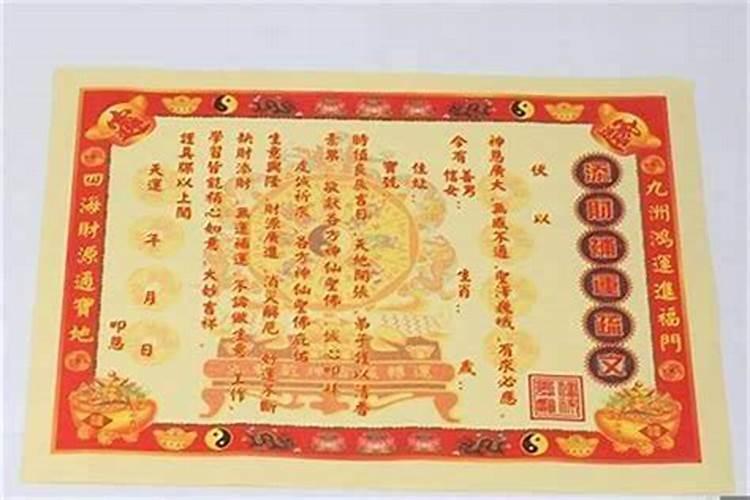 九洲鴻運進福門
添財補運疏文
伏以
神恩廣大 無感不通 聖澤巍峨 有求必應
今有善男信女： 生肖： 歲：
住址：
寶號
時值良辰吉日 天地開張 弟子僅以清香
素果 敬獻各方神仙聖佛 誠心叩拜
虔誠祈求 各方神仙聖佛庇佑
生意興隆 財源廣進 消災解厄 好運不斷
缺財添財 無運補運 不論做生意、工作、
學習皆能稱心如意、大妙吉祥
謹具疏以上聞
天運 年 月 日
叩懇
四海財源通寶地